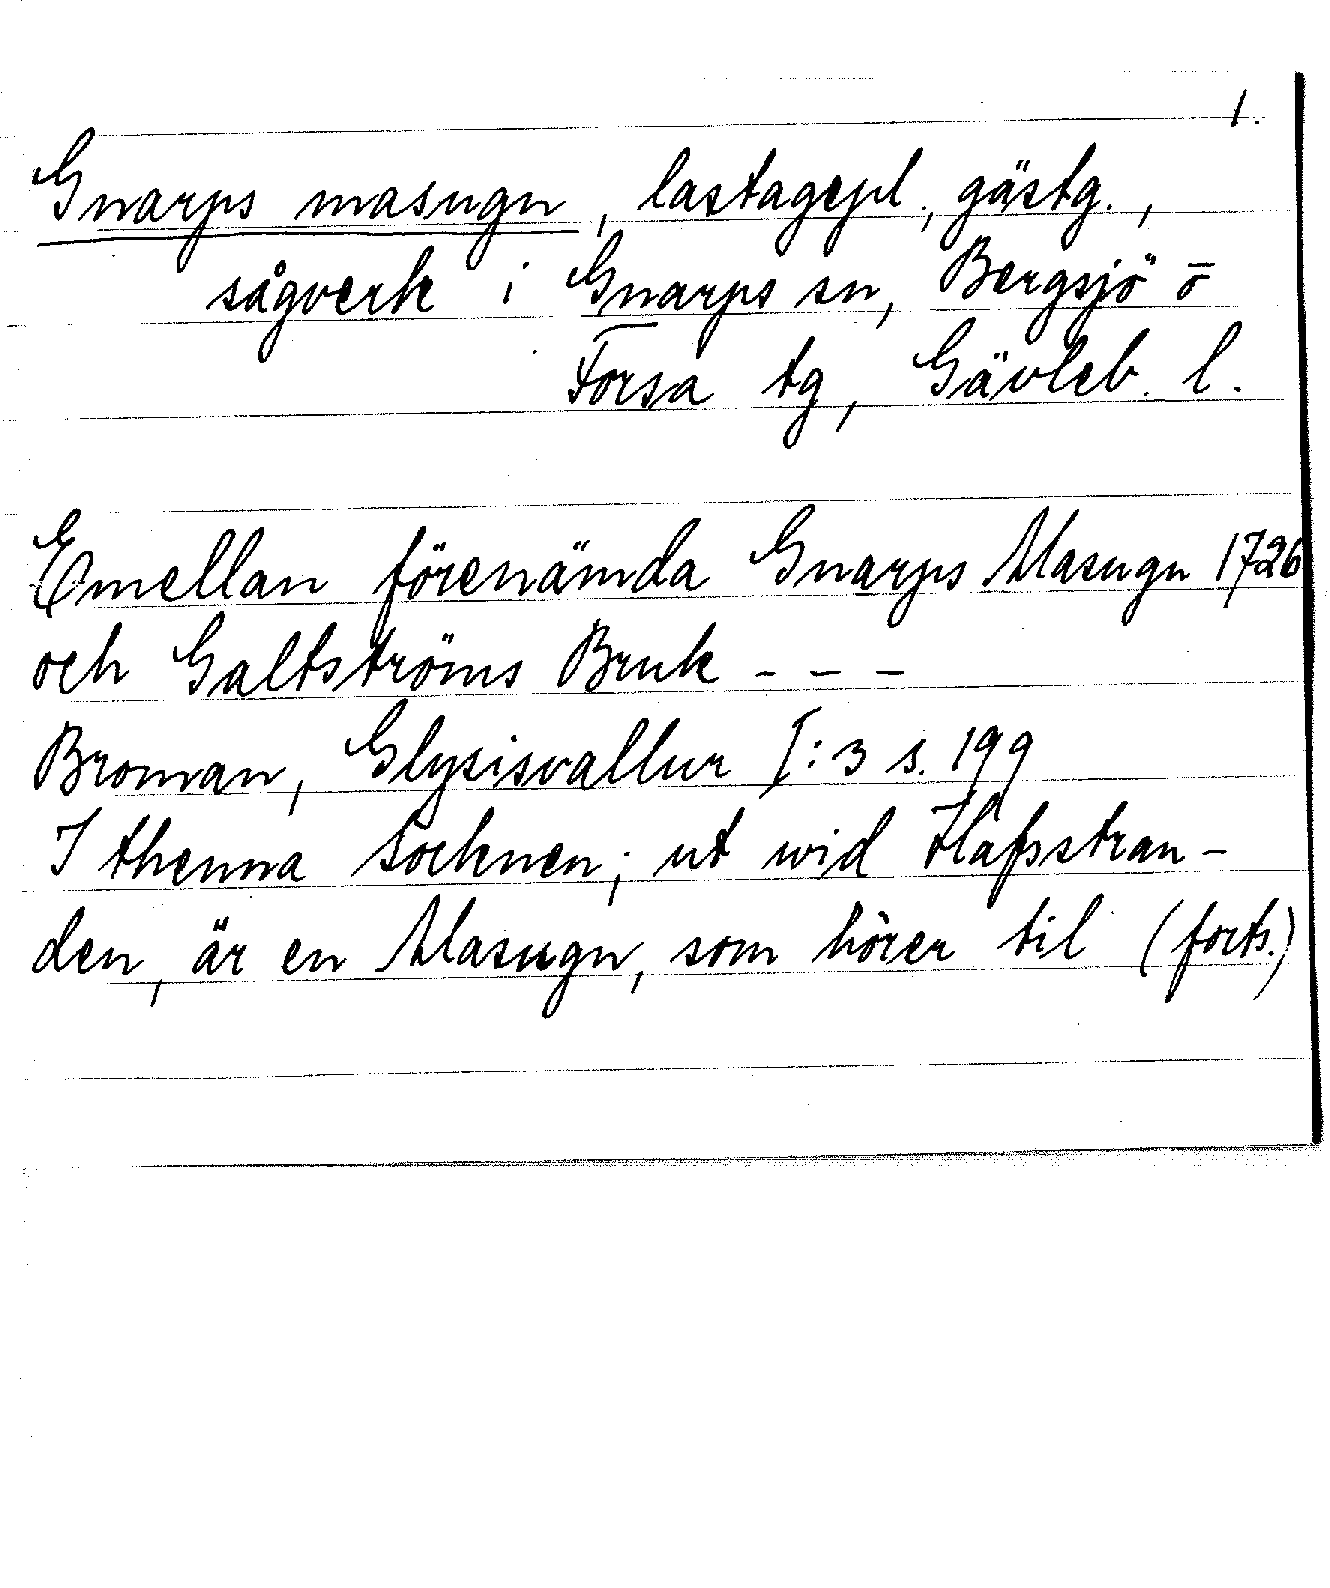 1.
Gnarps masugn, lastagepl., gästg.,
sågverk i Gnarps sn, Bergsjö o
Forsa tg, Gävleb. l.
Emellan förenämda Gnarps Masugn 1726
och Galtströms Bruk - - -
Broman, Glysisvallur I:3 s. 199
I thenna Socknen; ut wid Hafsstran-
den, är en Masugn, som hörer til (forts.)